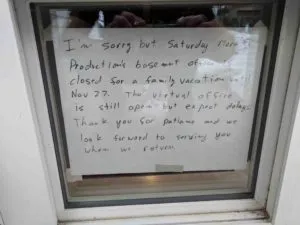 I'm sorry but Saturday Morning
Production's basement office is
closed for a family vacation until
Nov 27. The virtual office
is still open but expect delays.
Thank you for patience and we
look forward to serving you
when we return.